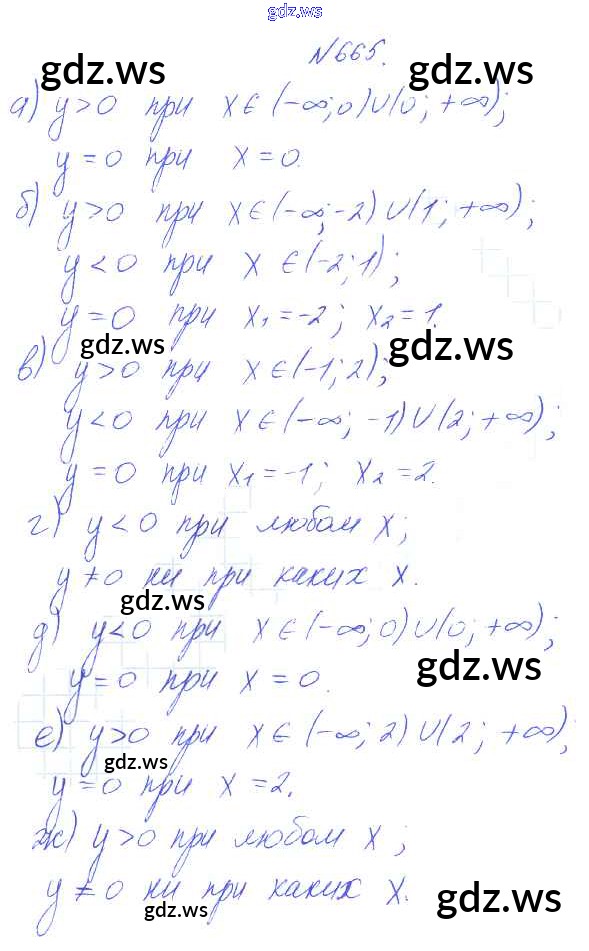 gdz.ws
№665.
gdz.ws gdz.ws
а) y>0 при x∈(-∞;0)∪(0;+∞);
y=0 при x=0.
б) y>0 при x∈(-∞;-2)∪(1;+∞);
y<0 при x∈(-2;1);
y=0 при x₁=-2; x₂=1.
gdz.ws gdz.ws
в) y>0 при x∈(-1;2);
y<0 при x∈(-∞;-1)∪(2;+∞);
y=0 при x₁=-1; x₂=2.
г) y<0 при любом x;
y≠0 ни при каких x.
gdz.ws
д) y<0 при x∈(-∞;0)∪(0;+∞);
gdz.ws
y=0 при x=0.
е) y>0 при x∈(-∞;2)∪(2;+∞);
gdz.ws
y=0 при x=2.
ж) y>0 при любом x;
y≠0 ни при каких x.
gdz.ws gdz.ws